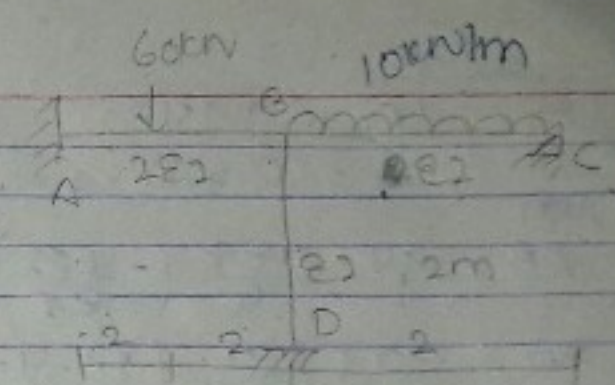 60kN 10kN/m
B
A 2EI EI C
EI 2m
D
2 2 2